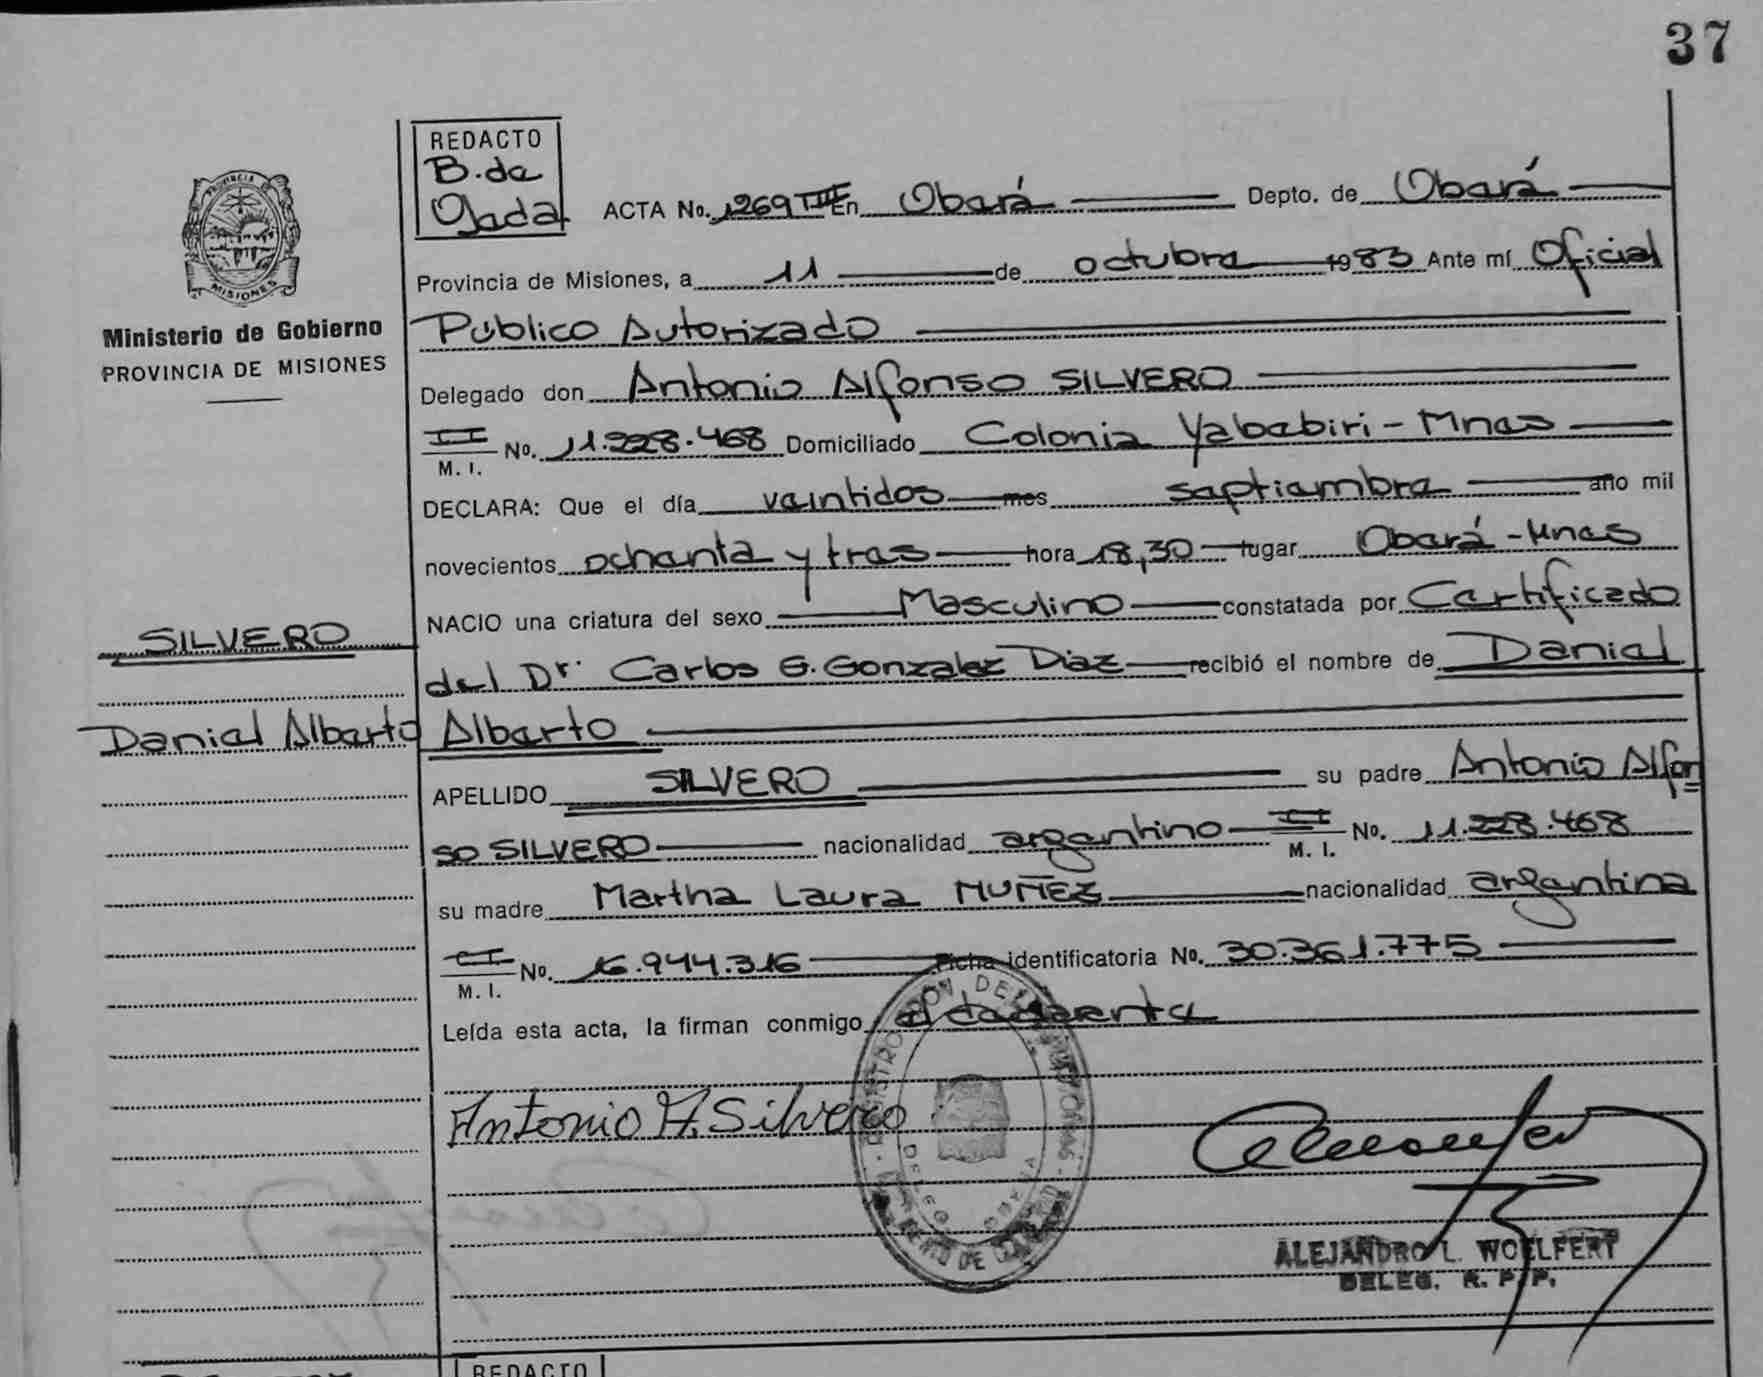 37
REDACTO
B. de
Ojeda
ACTA No. 1269 TIII En Oberá Depto. de Oberá
Provincia de Misiones, a 11 de octubre 1983 Ante mí Oficial
Público Autorizado
Delegado don Antonio Alfonso SILVERO
CI M. I. No. 11.228.468 Domiciliado Colonia Yabebiri - Mnes
DECLARA: Que el día veintidos mes septiembre año mil
novecientos ochenta y tres hora 18,30 lugar Oberá - Mnes
NACIO una criatura del sexo Masculino constatada por Certificado
del Dr. Carlos G. Gonzalez Diaz recibió el nombre de Daniel
Alberto
APELLIDO SILVERO su padre Antonio Alfon=
so SILVERO nacionalidad argentino CI M. I. No. 11.228.468
su madre Martha Laura MUÑEZ nacionalidad argentina
CI M. I. No. 16.944.316 Ficha identificatoria No. 30.361.775
Leída esta acta, la firman conmigo el
Antonio A. Silvero
ALEJANDRO L. WOELFERT
DELEG. R. P. P.
PROVINCIA
MISIONES
Ministerio de Gobierno
PROVINCIA DE MISIONES
SILVERO
Daniel Alberto
REDACTO